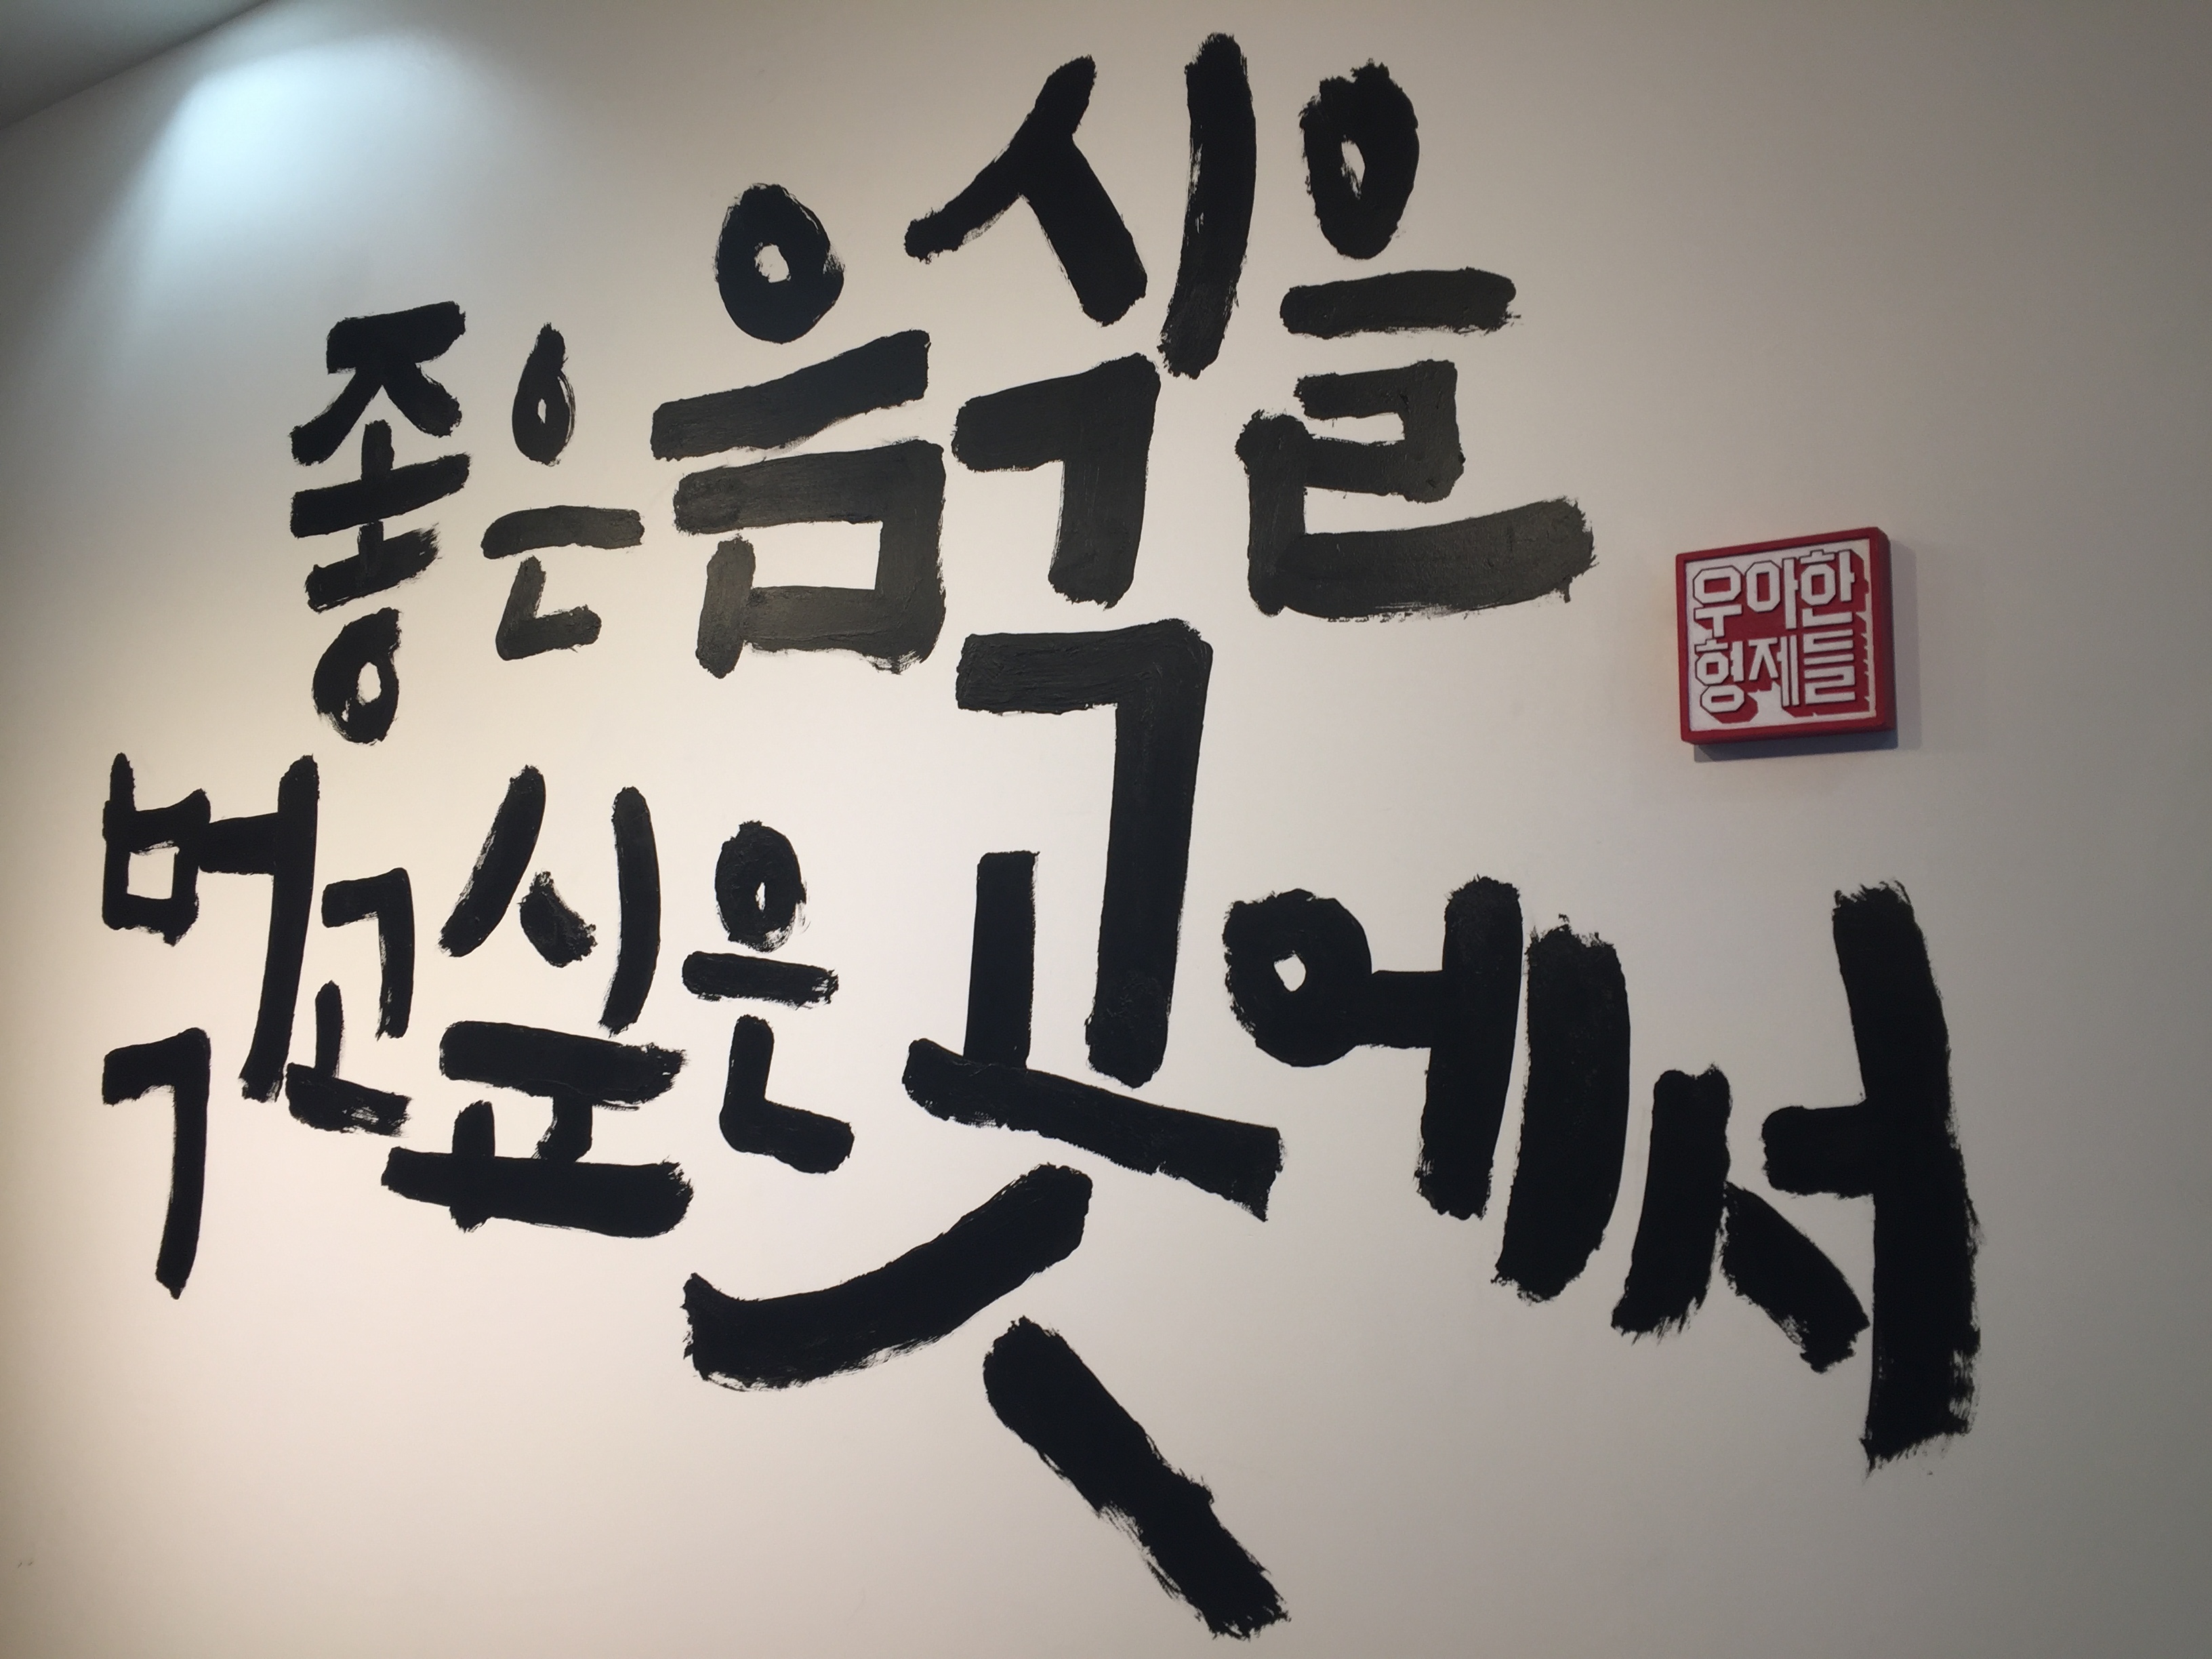 좋은 음식을
먹고싶은 곳에서
우아한
형제들